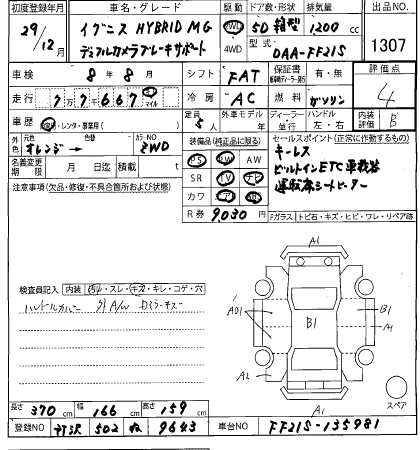 初度登録年月 車名・グレード 駆動 ドア数・形状 排気量 出品NO.
29/12月 イグニス HYBRID MG 2WD 4WD 5D 箱型 1200 cc 1307
デュアルカメラブレーキサポート 型式 DAA-FF21S
車検 8年8月 シフト FAT 保証書 有・無 評価点
走行 77667 マイル 冷房 AC 燃料 ガソリン 4
車歴 自家用・レンタ・事業用( ) 定員 5人 外車モデル 年 ディーラー・並行 ハンドル 左・右 内装評価 B
外色 元色 オレンジ→ 色替 カラーNO ZWD 装備品(純正品に限る) セールスポイント(正常に作動するもの)
名義変更期限 月 日迄 積載 t PS PW AW キーレス
注意事項(欠品・修復・不具合箇所および状態) SR TV ナビ ビルトインETC車載器
カワ エアB 運転席シートヒーター
R券 9,030円 Fガラス トビ石・キズ・ヒビ・ワレ・リペア跡
検査員記入 内装 汚レ・スレ・キズ・キレ・コゲ・穴
ハンドルカバー 外A/W
A1
AD1 B1 B1
A1
A2
A1
スペア
長さ 370 cm 幅 166 cm 高さ 159 cm
登録NO 502 ね 9643 車台NO FF21S-135981